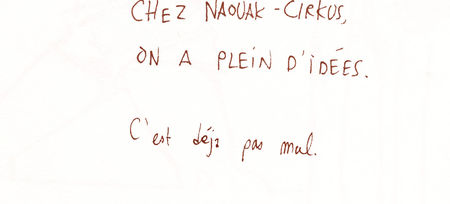 CHEZ NAOUAK-CIRKUS,
ON A PLEIN D'IDÉES.
C'est déjà pas mal.